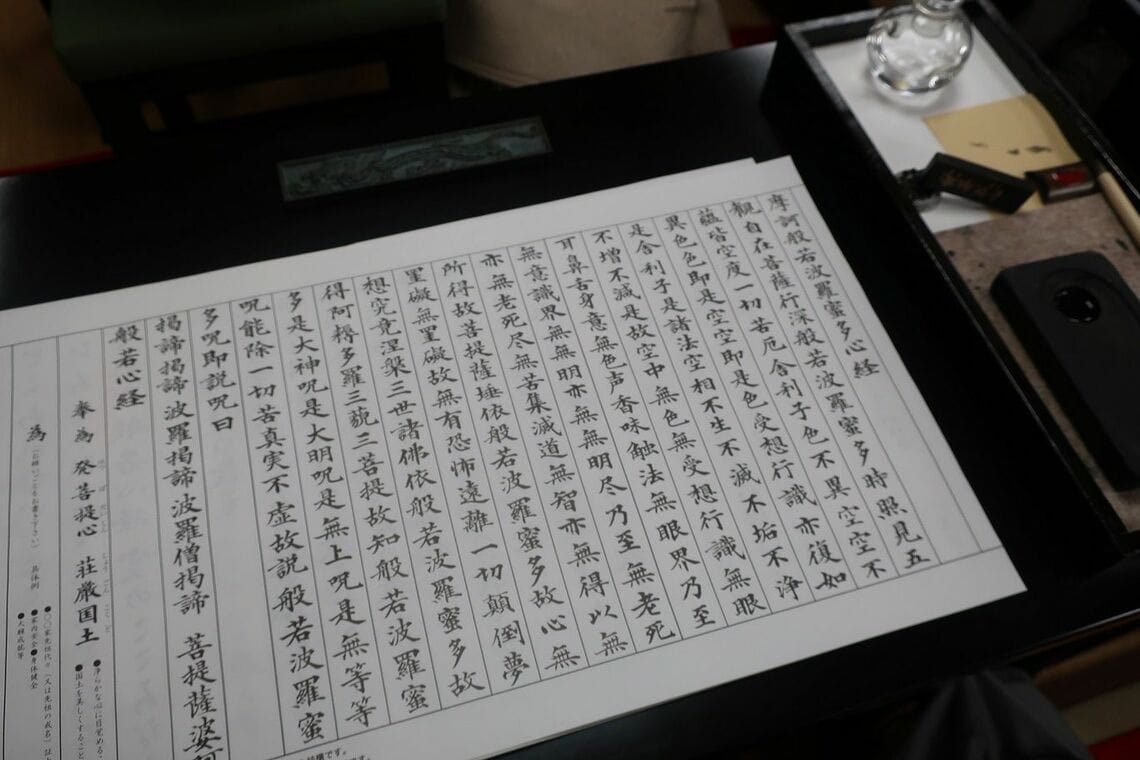 摩訶般若波羅蜜多心経
観自在菩薩行深般若波羅蜜多時照見五
蘊皆空度一切苦厄舎利子色不異空空不
異色色即是空空即是色受想行識亦復如
是舎利子是諸法空相不生不滅不垢不浄
不増不減是故空中無色無受想行識無眼
耳鼻舌身意無色声香味触法無眼界乃至
無意識界無無明亦無無明尽乃至無老死
亦無老死尽無苦集滅道無智亦無得以無
所得故菩提薩埵依般若波羅蜜多故心無
罣礙無罣礙故無有恐怖遠離一切顛倒夢
想究竟涅槃三世諸佛依般若波羅蜜多故
得阿耨多羅三藐三菩提故知般若波羅蜜
多是大神呪是大明呪是無上呪是無等等
呪能除一切苦真実不虚故説般若波羅蜜
多呪即説呪曰
掲諦掲諦波羅掲諦波羅僧掲諦 菩提薩婆
般若心経
奉為 発菩提心 荘厳国土
●浄らかな心に目覚める
●国土を美しくすること
為 (お願いごとをお書き下さい) 具体例
●〇〇家先祖代々(又は先祖の戒名)
●家内安全●身体健全
●大願成就等
です。